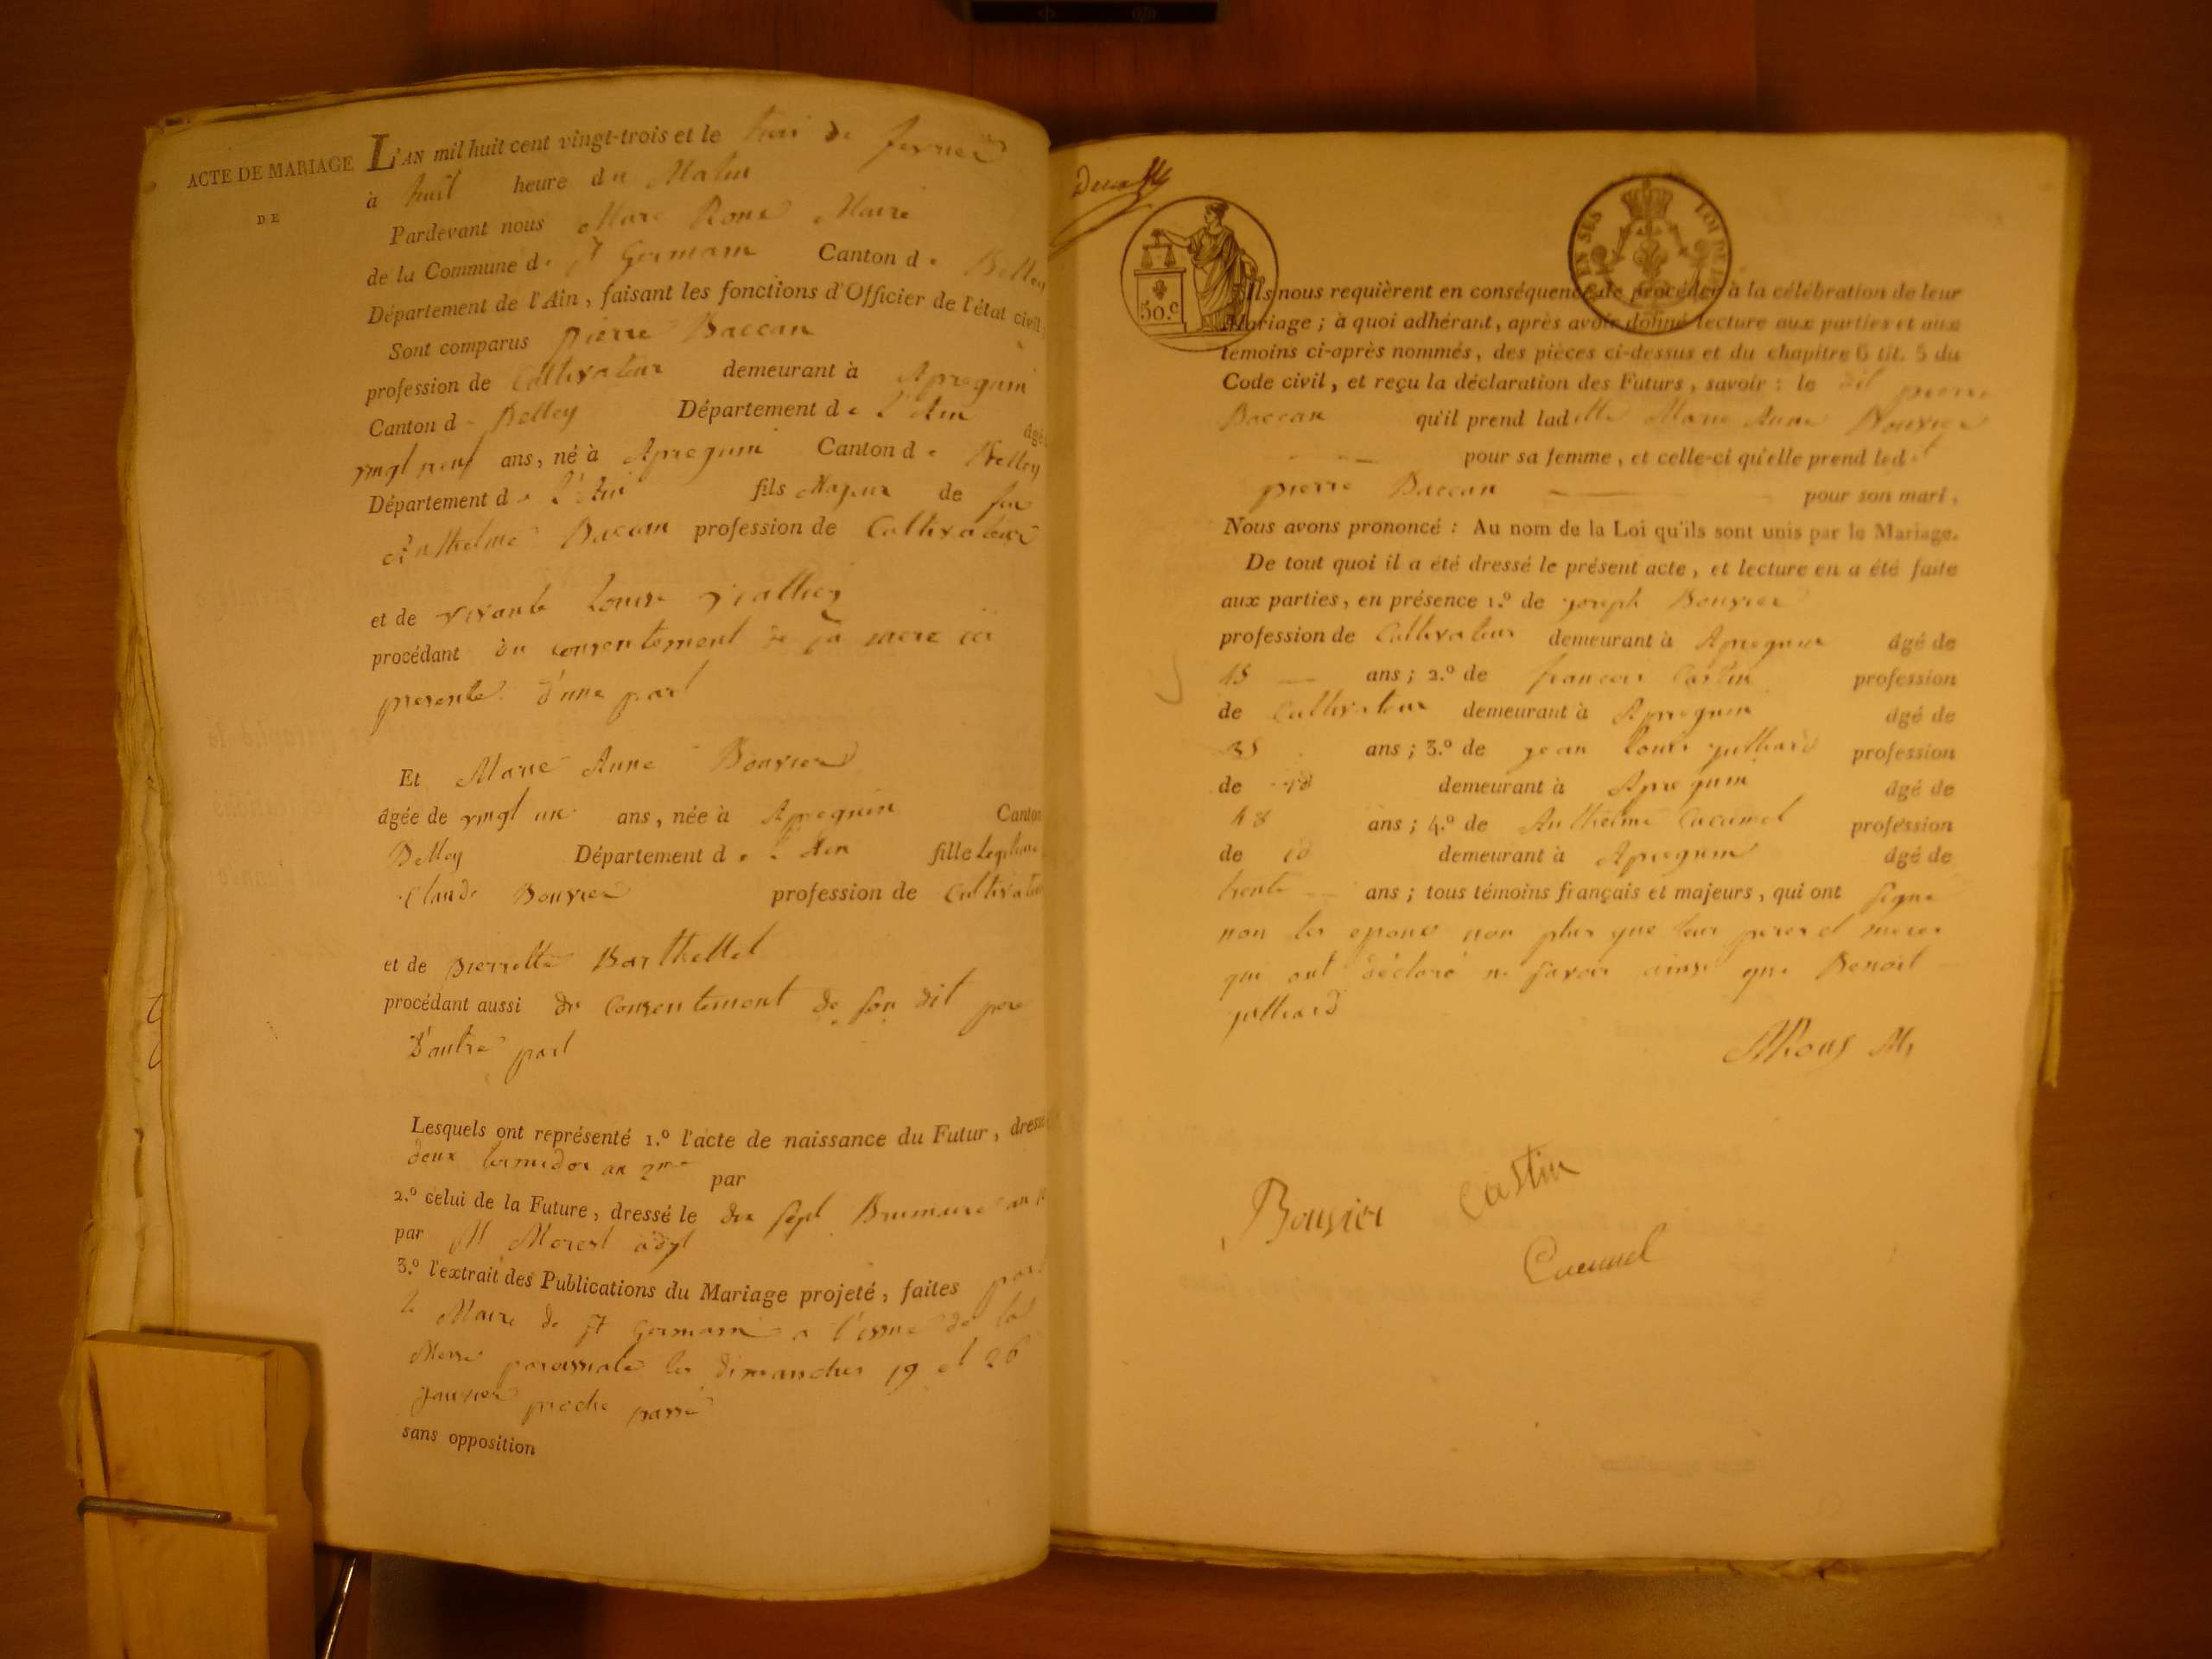 ACTE DE MARIAGE
DE
L'AN mil huit cent vingt-trois et le trois de fevrier
à huit heure du Matin
Pardevant nous Marc Roux Maire
de la Commune de St Germain Canton de Belley
Département de l'Ain, faisant les fonctions d'Officier de l'état civil
Sont comparus pierre Baccan
profession de Cultivateur demeurant à Apregnin
Canton de Belley Département de L'Ain âgé
vingt neuf ans, né à Apregnin Canton de Belley
Département de L'Ain fils Majeur de feu
Anthelme Baccan profession de Cultivateur
et de vivante Louise
procédant du consentement de sa mere ici
presente d'une part
Et Marie Anne Bouvier
âgée de vingt un ans, née à Apregnin Canton
Belley Département de L'Ain fille Legitime
Claude Bouvier profession de Cultivateur
et de pierrette Barthellet
procédant aussi du Consentement de son dit pere
D'autre part
Lesquels ont représenté 1.º l'acte de naissance du Futur, dressé
deux termidor an 2me par
2.º celui de la Future, dressé le dix sept Brumaire an
par M Morest adjt
3.º l'extrait des Publications du Mariage projeté, faites par
le Maire de St Germain a l'issue de la
Messe paroissiale les dimanches 19 et 26
janvier proche passé
sans opposition
50.c
EN SES LOI DE
Ils nous requièrent en conséquence de procéder à la célébration de leur
Mariage; à quoi adhérant, après avoir donné lecture aux parties et aux
temoins ci-après nommés, des pièces ci-dessus et du chapitre 6 tit. 5 du
Code civil, et reçu la déclaration des Futurs, savoir: le dit pierre
Baccan qu'il prend ladette Marie Anne Bouvier
pour sa femme, et celle-ci qu'elle prend ledit
pierre Baccan pour son mari,
Nous avons prononcé: Au nom de la Loi qu'ils sont unis par le Mariage.
De tout quoi il a été dressé le présent acte, et lecture en a été faite
aux parties, en présence 1.º de joseph Bouvier
profession de Cultivateur demeurant à Apregnin âgé de
45 ans; 2.º de françois Castin profession
de Cultivateur demeurant à Apregnin âgé de
35 ans; 3.º de jean Louis julliard profession
de id demeurant à Apregnin âgé de
48 ans; 4.º de Anthelme Cucumel profession
de id demeurant à Apregnin âgé de
trente ans; tous témoins français et majeurs, qui ont signé
non les epoux non plus que leur peres et meres
qui ont déclaré ne savoir ainsi que Benoit
julliard
MRoux Mr
Bouvier Castin
Cucumel